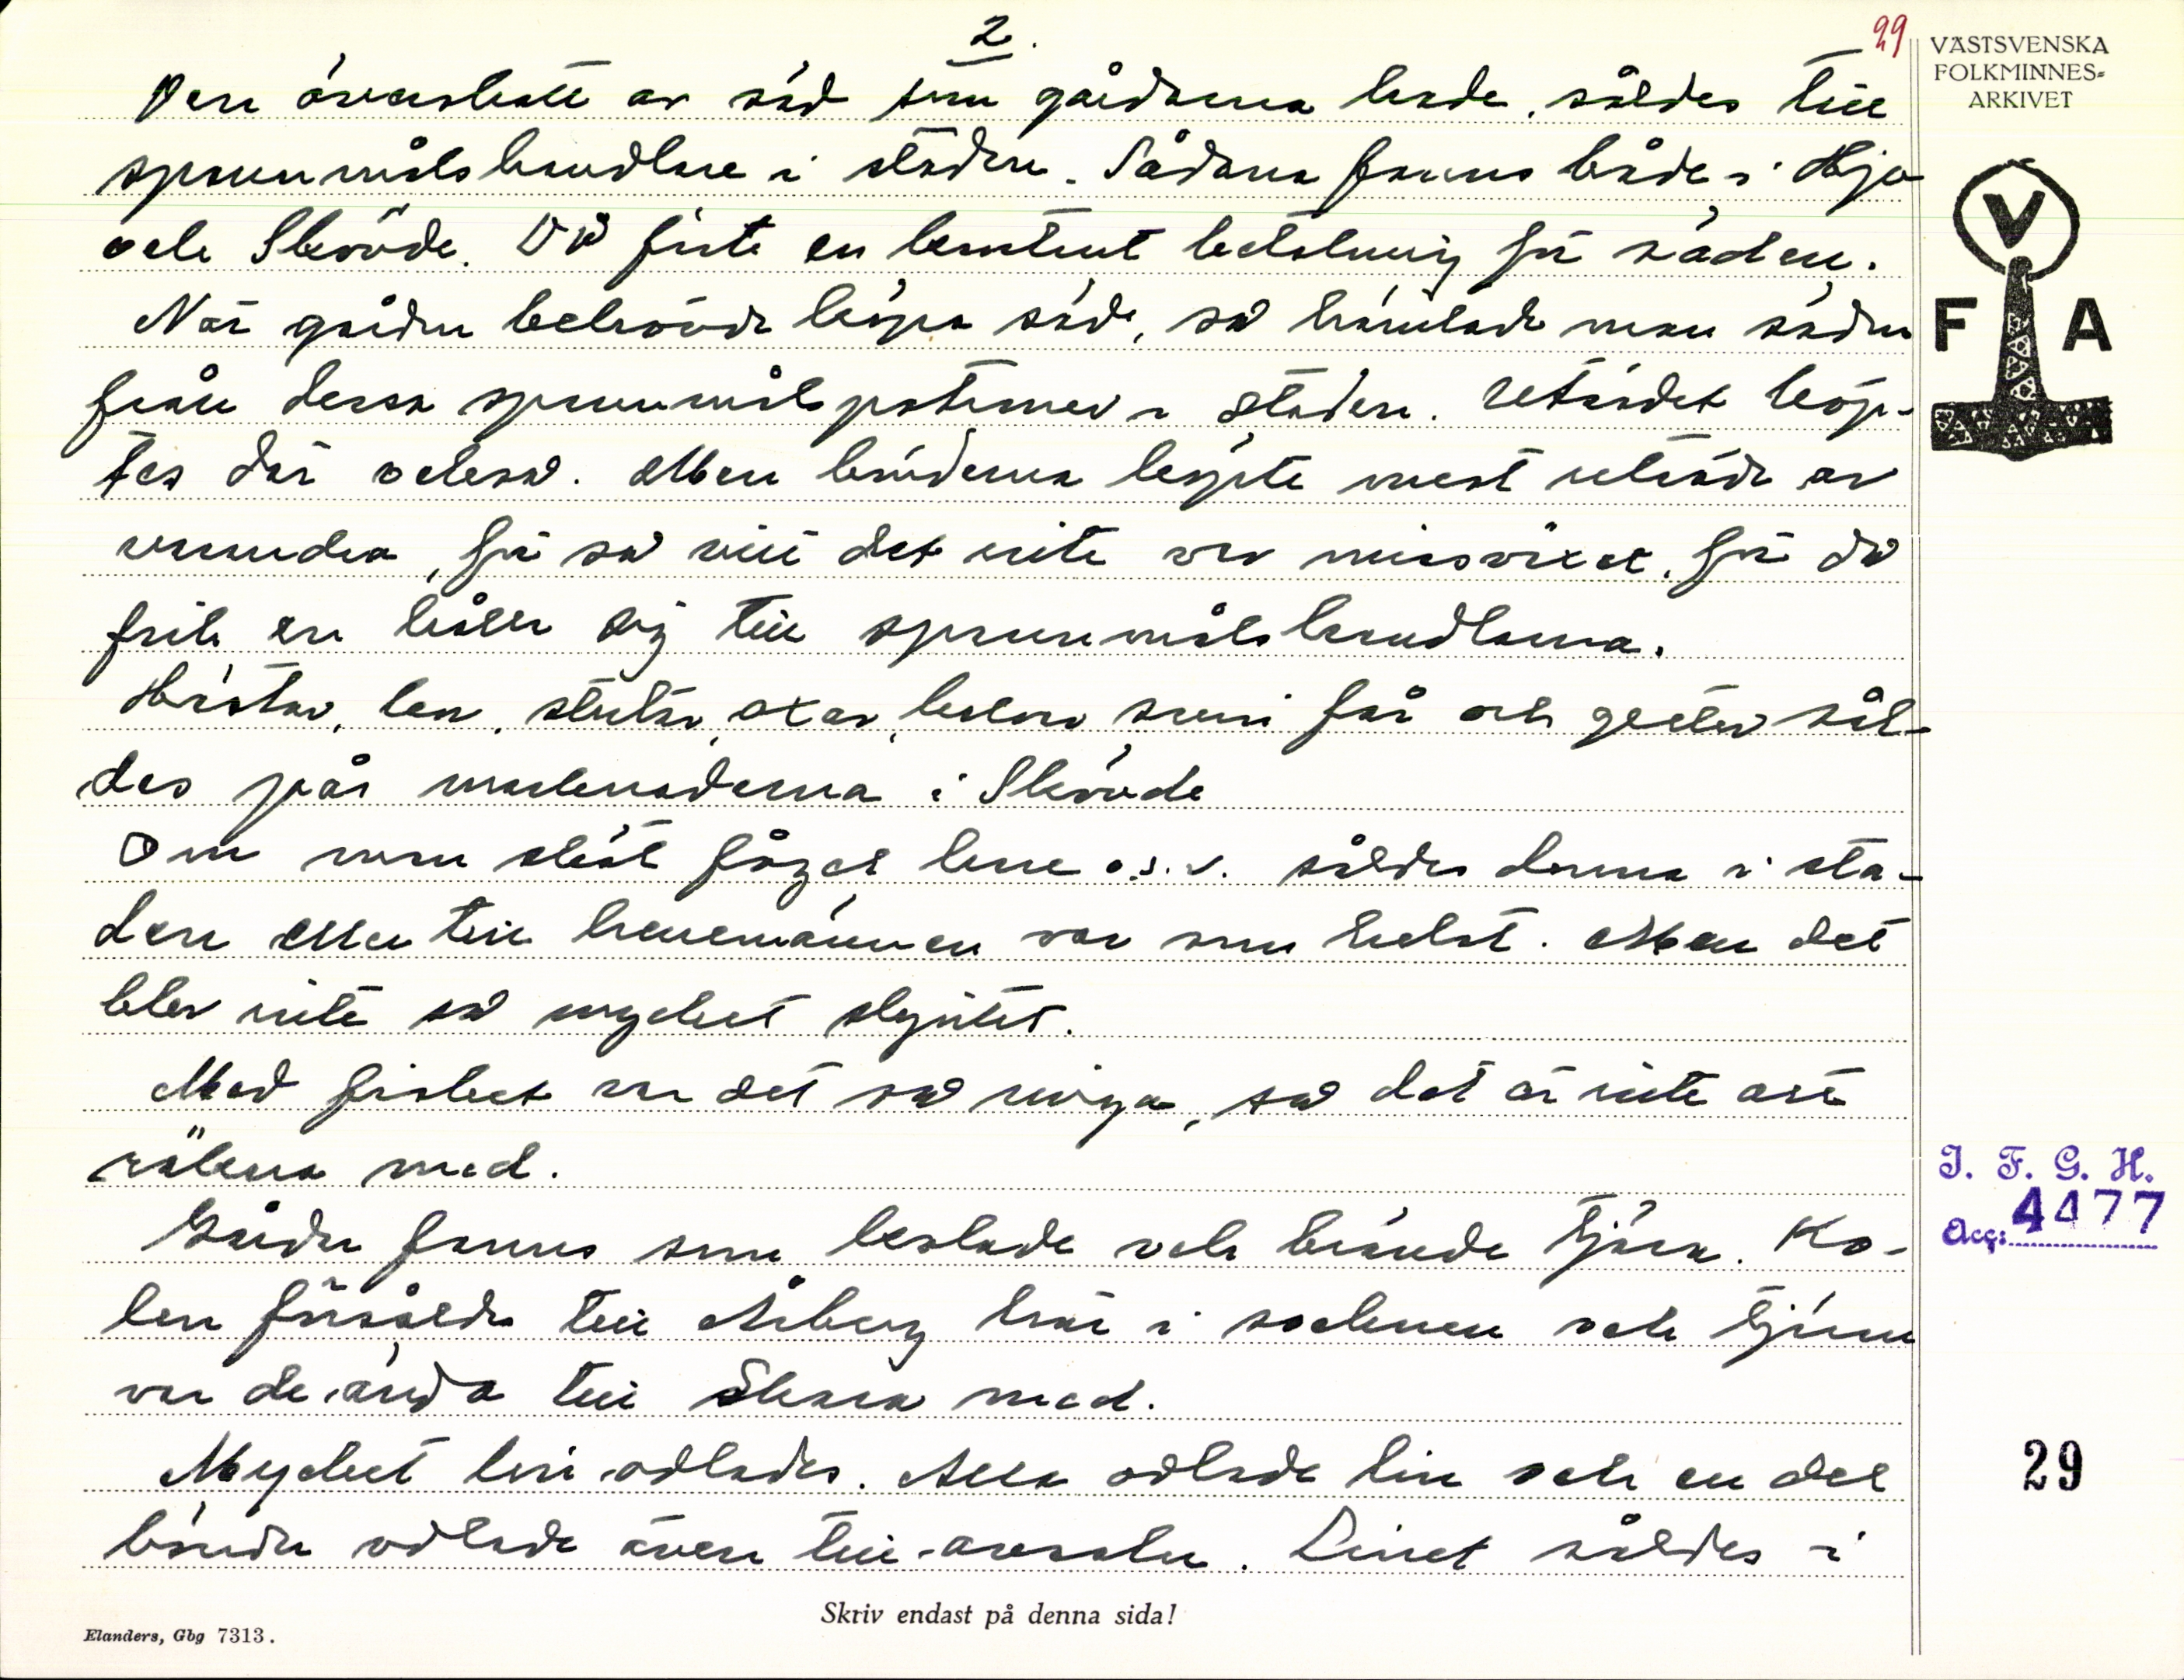 2.
29
VÄSTSVENSKA
FOLKMINNES=
ARKIVET
Den överskott av säd som gårdarna hade, såldes till
spannmålshandlare i staden. Sådana fanns både i Hjo
och Skövde. Då fick en kontant betalning för säden.
När gården behövde köpa säd, så hämtade man säden
från dessa spannmåls i staden. Utsädet köp-
tes där också. Men bönderna köpte mest utsäde av
varandra, för så vitt det inte var missväxt, för då
fick en hålla sig till spannmålshandlarna.
Hästar, kor, stutar, oxar, kalvar, svin får och getter sål-
des på marknaderna i Skövde
Om man sköt fågel hare o.s.v. såldes denna i sta-
den eller till herremännen var som helst. Men det
blev inte så mycket skjutet.
Med fisket var det så ringa, så det är inte att
räkna med.
Gårdar fanns som kolade och brände tjära. Ko-
len försålde till Åsberg här i socknen och tjäran
var de ända till Skara med.
Mycket lin odlades. Alla odlade lin och en del
bönder odlade även till avsalu. Linet såldes i
V
F A
I. F. G. H.
Acc: 4477
29
Skriv endast på denna sida!
Elanders, Gbg 7313.